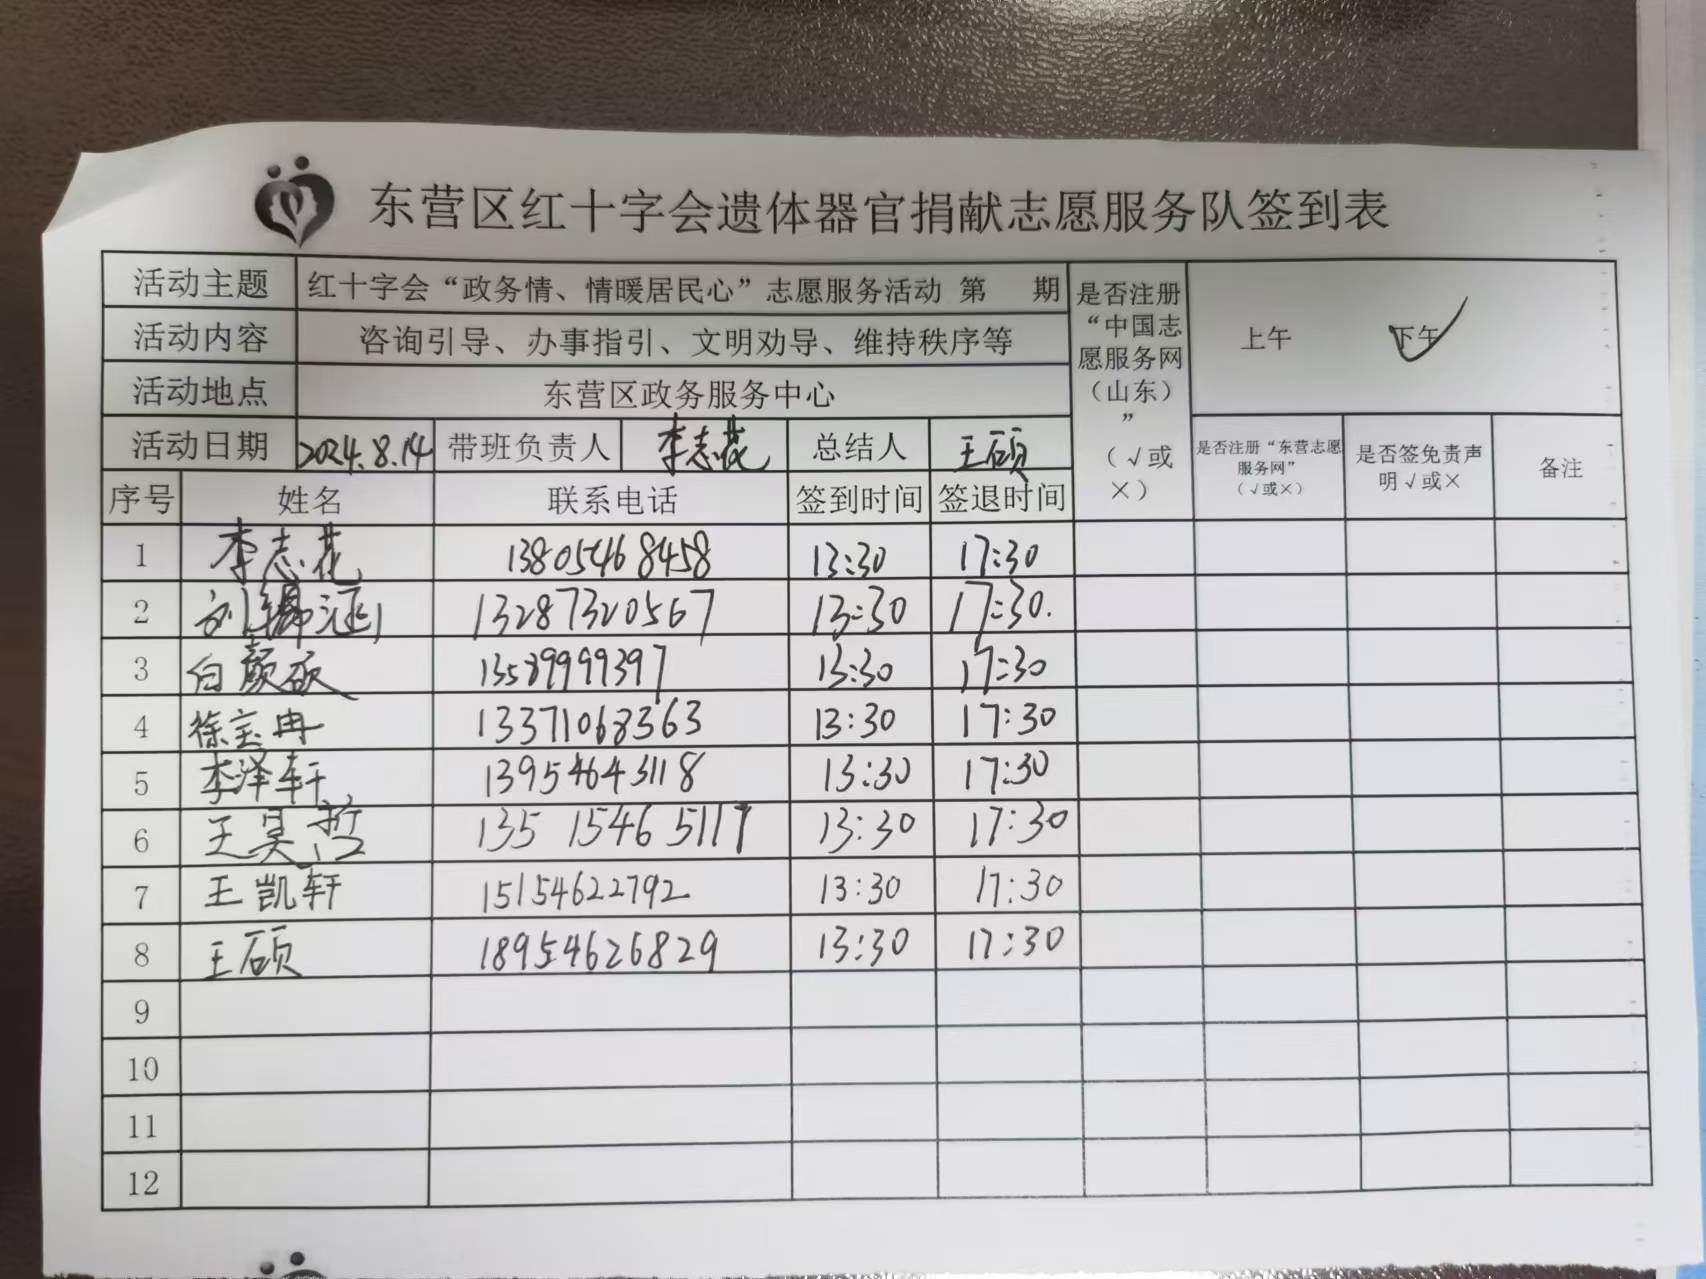 东营区红十字会遗体器官捐献志愿服务队签到表
活动主题 红十字会“政务情、情暖居民心”志愿服务活动 第 期
活动内容 咨询引导、办事指引、文明劝导、维持秩序等
活动地点 东营区政务服务中心
活动日期 2024.8.14 带班负责人 李志花 总结人 王硕
是否注册
“中国志
愿服务网
（山东）
”
（√或
×）
上午 下午
是否注册“东营志愿
服务网”
（√或×）
是否签免责声
明√或×
备注
序号 姓名 联系电话 签到时间 签退时间
1 李志花 13805468458 13:30 17:30
2 13287320567 13:30 17:30.
3 白颜硕 13589999397 13:30 17:30
4 徐宝冉 13371068363 13:30 17:30
5 李泽轩 13954643118 13:30 17:30
6 王昊哲 135 1546 5117 13:30 17:30
7 王凯轩 15154622792 13:30 17:30
8 王硕 18954626829 13:30 17:30
9
10
11
12